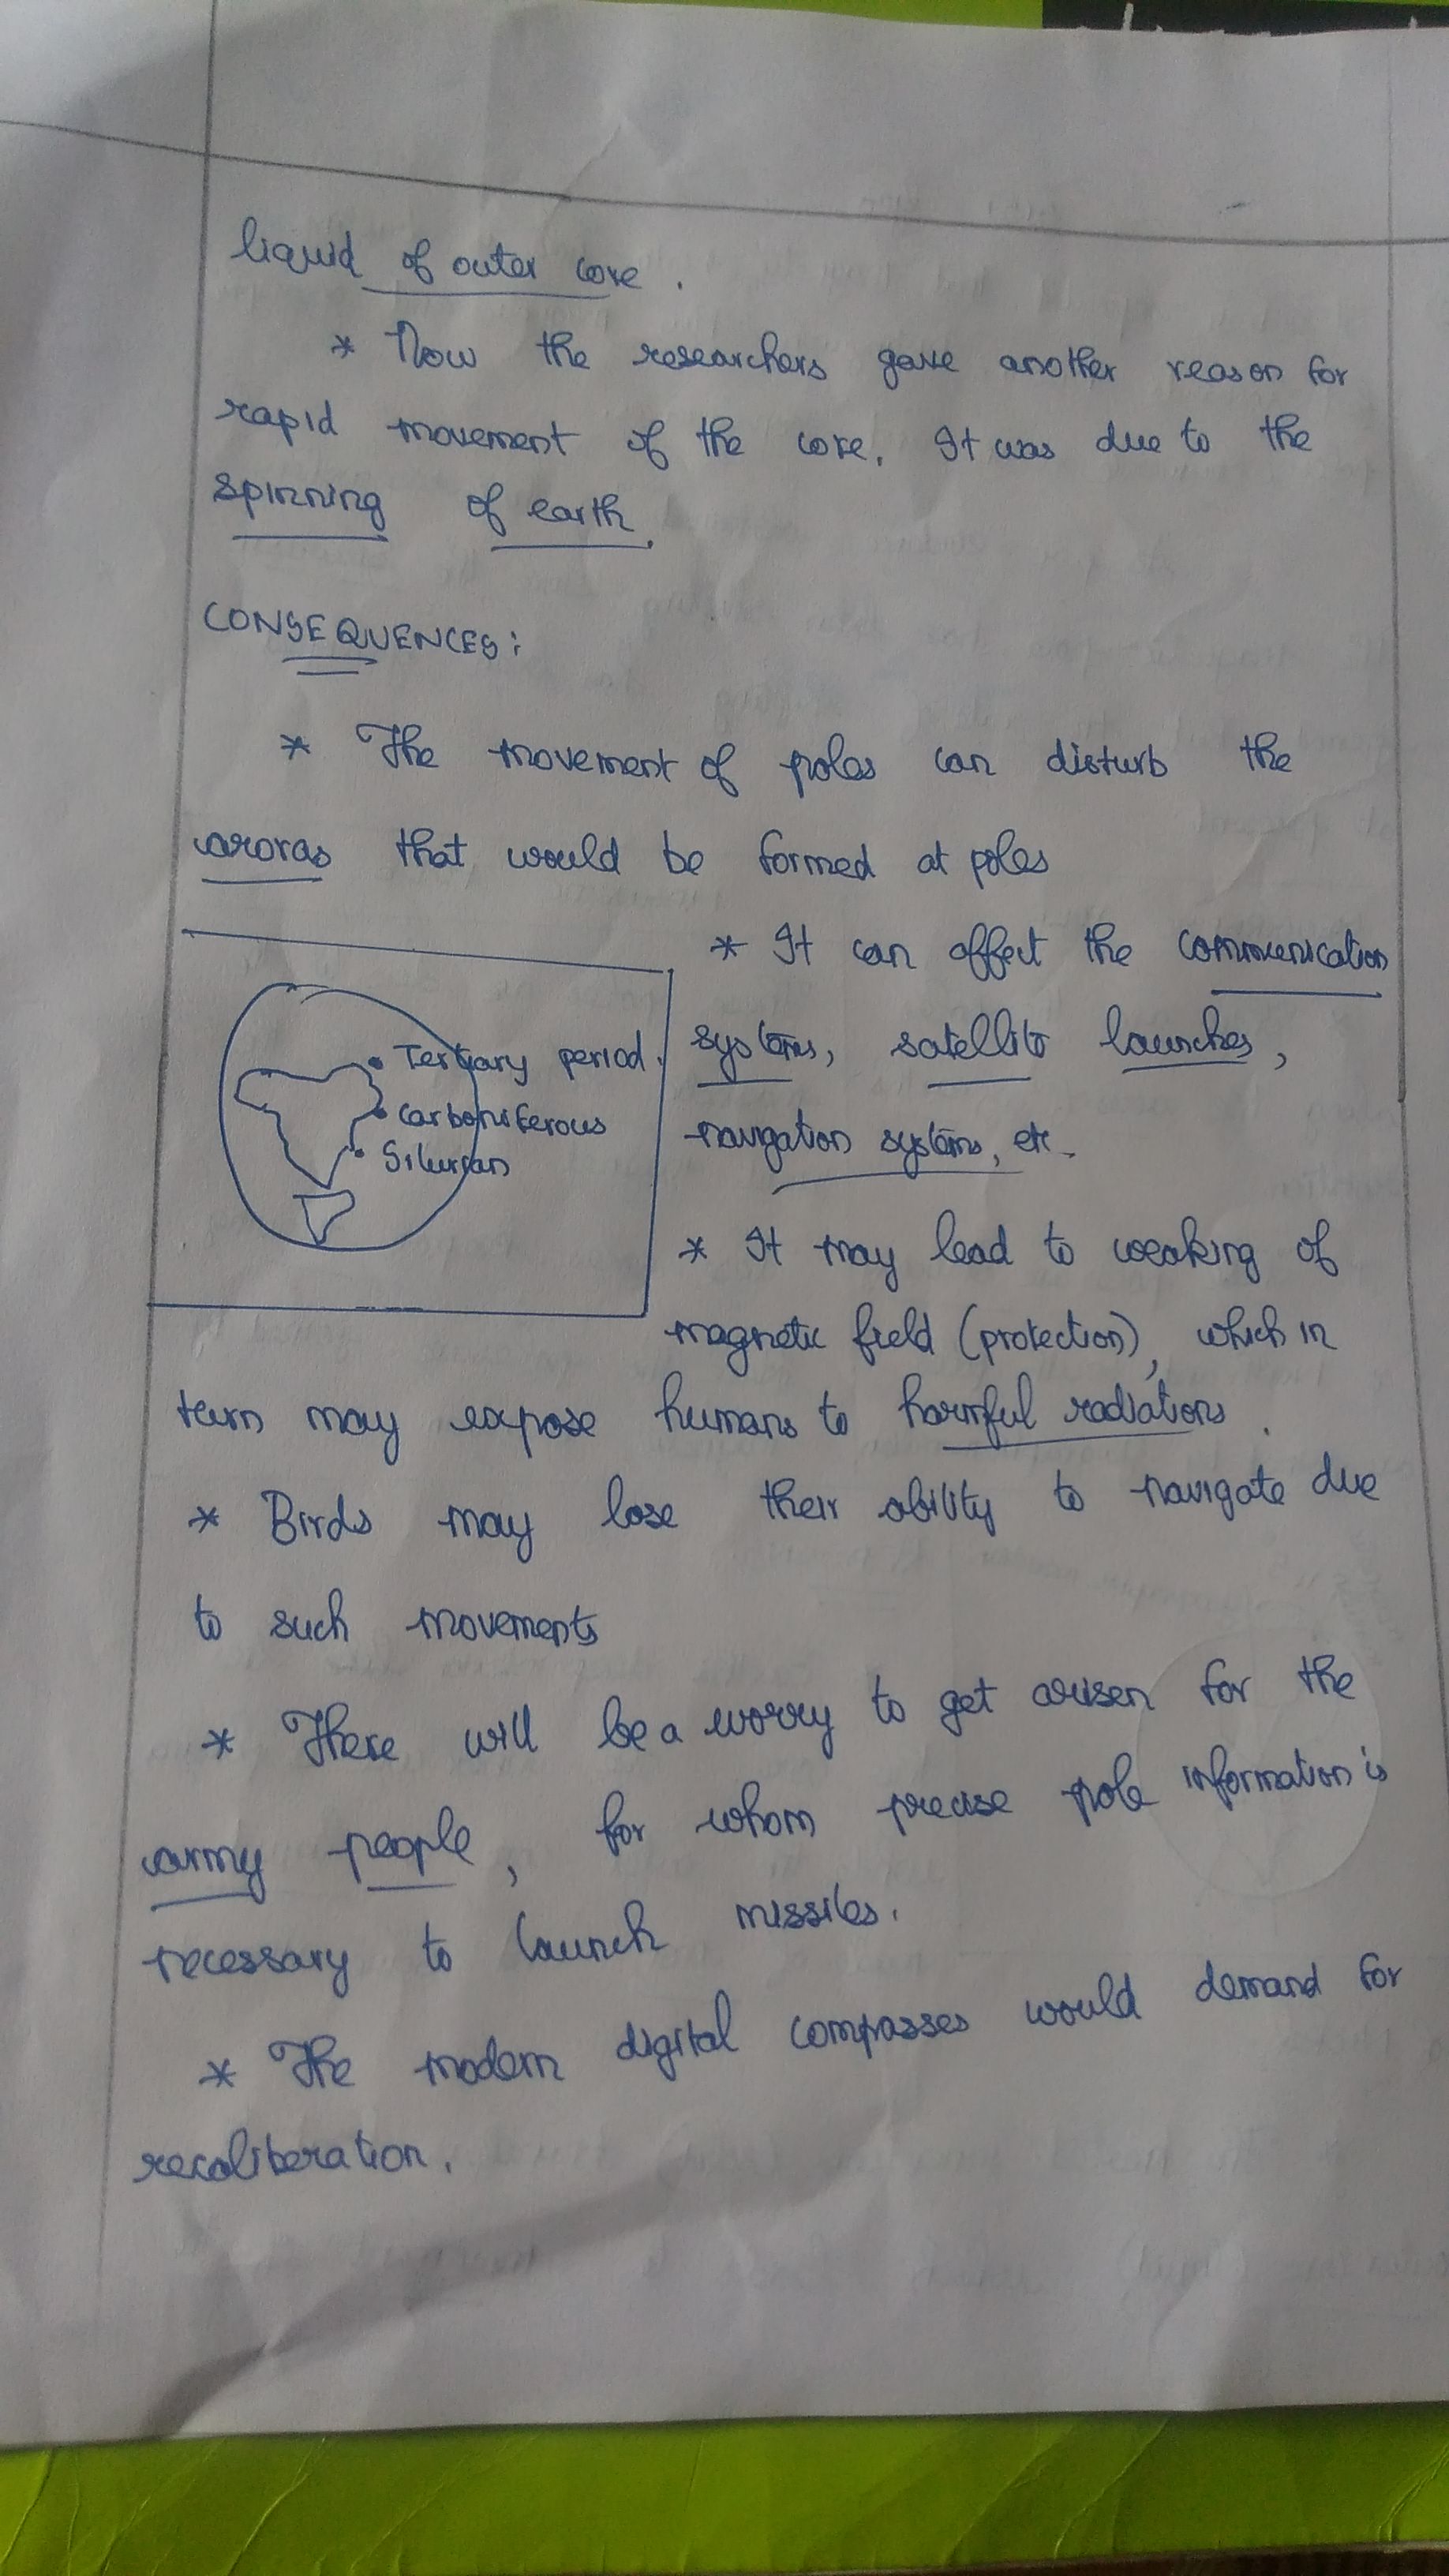 liquid of outer core.
* Now the researchers gave another reason for
rapid movement of the core. It was due to the
spinning of earth.
CONSEQUENCES:
* The movement of poles can disturb the
aroras that would be formed at poles
* It can affect the communication
systems, satellite launches,
navigation systems, etc.
Tertiary period.
Carboniferous
Silurian
* It may lead to weaking of
magnetic field (protection), which in
turn may expose humans to harmful radiations.
* Birds may lose their ability to navigate due
to such movements
* There will be a worry to get arisen for the
army people, for whom precise pole information is
necessary to launch missiles.
* The modern digital compasses would demand for
recaliberation.